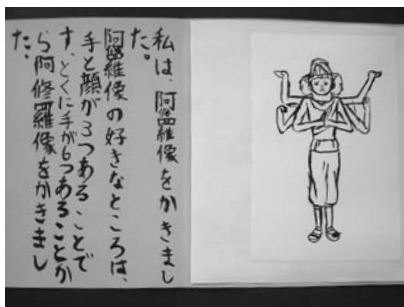 私は、阿修羅像をかきまし
た。
阿修羅像の好きなところは、
手と顔が3つあることで
す。とくに手が6つあることか
ら阿修羅像をかきまし
た。